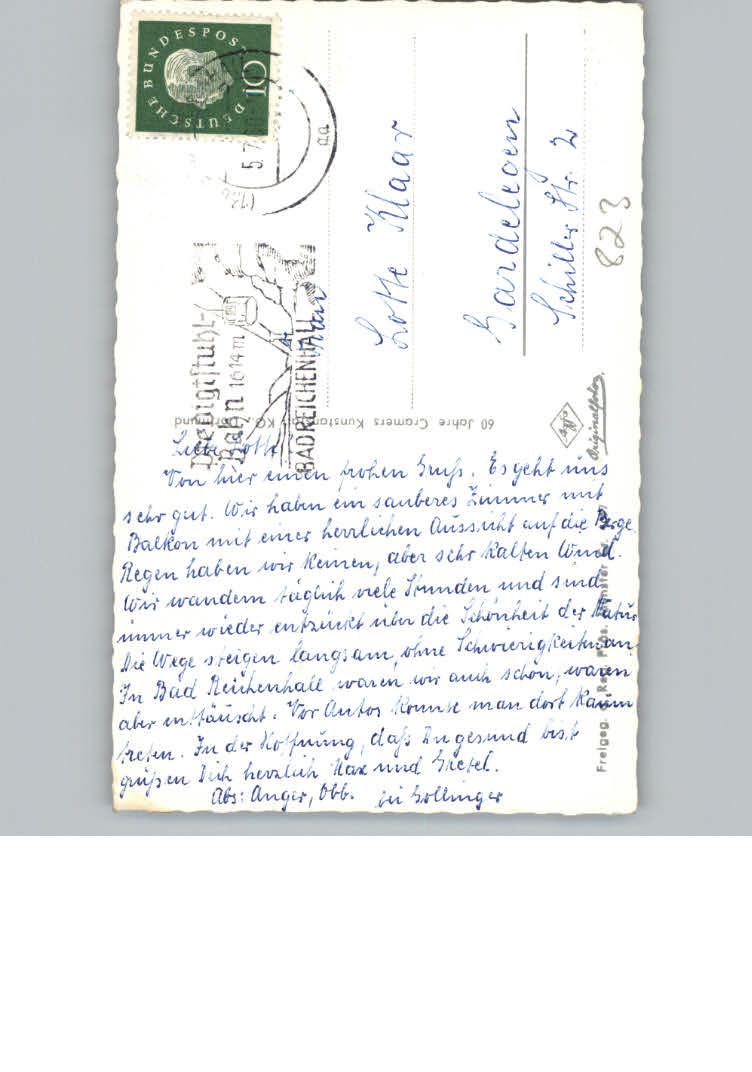 DEUTSCHE BUNDESPOST
10
5.7.
aa
Predigtstuhl-
Bahn 1614m
BAD REICHENHALL
Lotte Klaar
Gardelegen
Schiller Str. 2
823
60 Jahre Cramers Kunstanstalt KG, Dortmund
Agfa
Originalfoto
Freigeg. Reg. Präs. Münster
Liebe Lotte!
Von hier einen frohen Gruß. Es geht uns
sehr gut. Wir haben ein sauberes Zimmer mit
Balkon mit einer herrlichen Aussicht auf die Berge.
Regen haben wir keinen, aber sehr kalten Wind.
Wir wandern täglich viele Stunden und sind
immer wieder entzückt über die Schönheit der Natur.
Die Wege steigen langsam, ohne Schwierigkeiten an.
In Bad Reichenhall waren wir auch schon, waren
aber enttäuscht. Vor Autos konnte man dort kaum
treten. In der Hoffnung, daß Du gesund bist
grüßen Dich herzlich Max und Gretel.
Abs: Anger, Obb. bei Gollinger